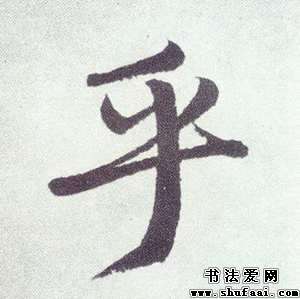 乎
书法爱网
www.shufaai.com